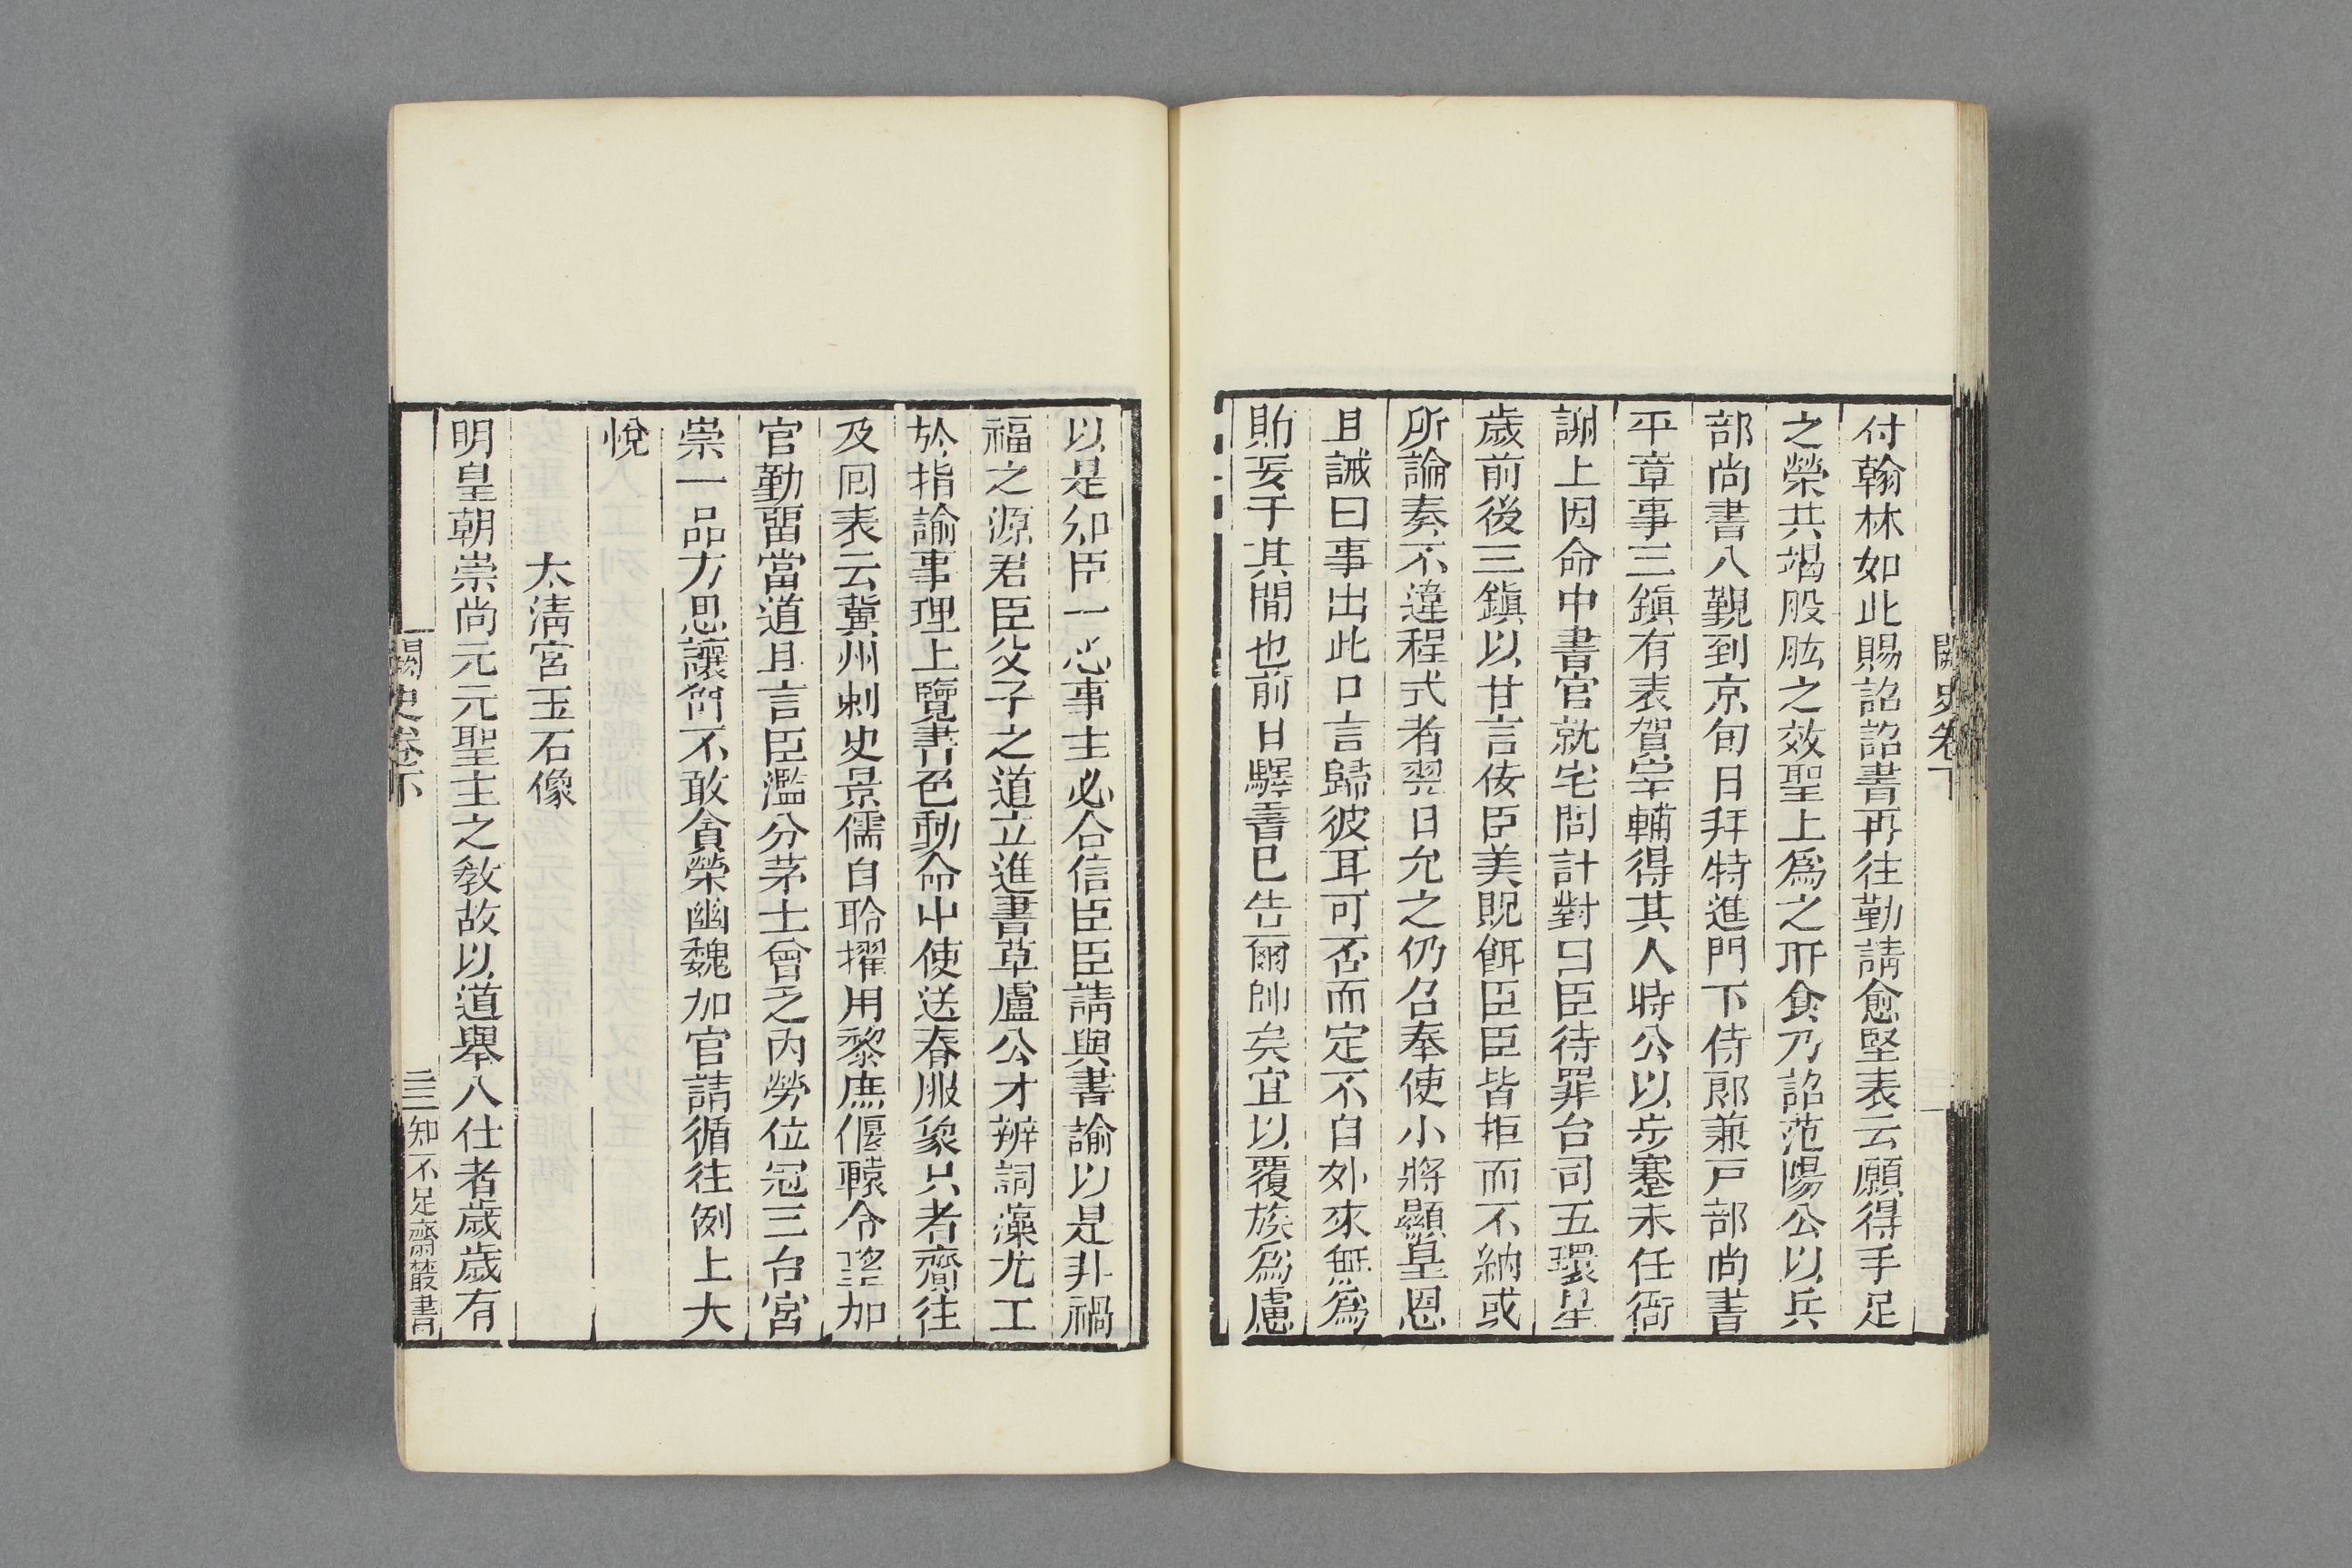 闕史卷下
付翰林如此賜詔詔書再往勤請愈堅表云願得手足
之榮共竭股肱之效聖上爲之所食乃詔范陽公以兵
部尚書入覲到京旬日拜特進門下侍郎兼戸部尚書
平章事三鎭有表賀宰輔得其人時公以步蹇未任衙
謝上因命中書官就宅問計對曰臣待罪台司五環星
歲前後三鎭以甘言侫臣美貺餌臣臣皆拒而不納或
所論奏不違程式者翌日允之仍召奉使小將顯皇恩
且誡曰事出此口言歸彼耳可否而定不自外來無爲
貽妄于其閒也前日驛書已告爾帥矣宜以覆族爲慮
以是卯臣一心事主必合信臣臣請與書諭以是非禍
福之源君臣父子之道立進書草盧公才辨詞藻尤工
於指諭事理上覽書色動命中使送春服象只者齎往
及回表云冀州刺史景儒自聆擢用黎庶偃轅令望加
官勤留當道且言臣濫分茅土曾乏丙勞位冠三台宮
崇一品方思讓爵不敢貪榮幽魏加官請循往例上大
悅
太淸宮玉石像
明皇朝崇尚元元聖主之敎故以道舉入仕者歲歲有
闕史卷下
三
知不足齋叢書